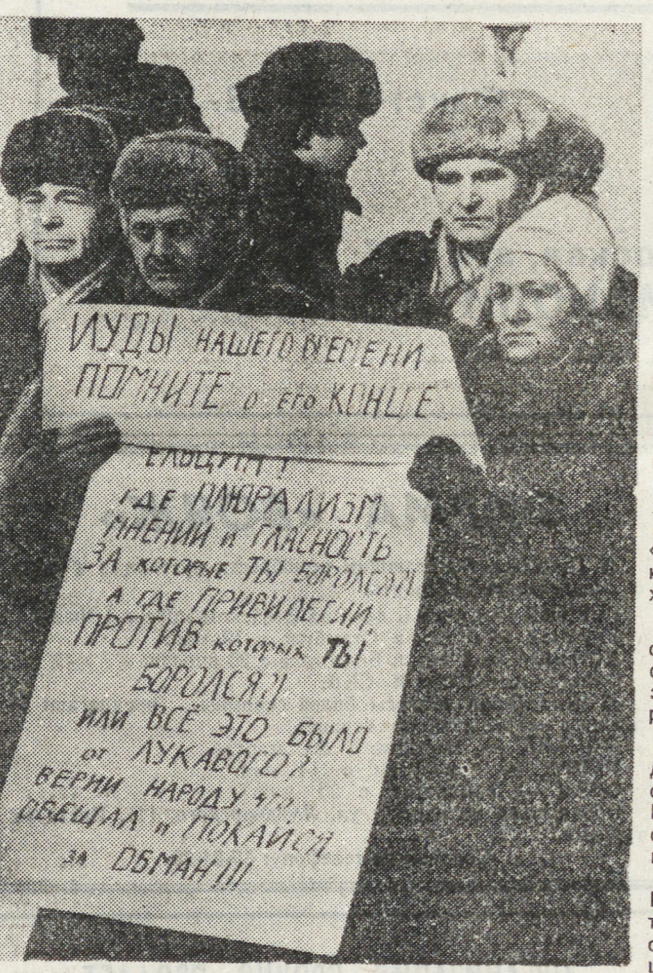 ИУДЫ НАШЕГО ВРЕМЕНИ
ПОМНИТЕ о его КОНЦЕ
ЕЛЬЦИН!
ГДЕ ПЛЮРАЛИЗМ
МНЕНИЙ и ГЛАСНОСТЬ
ЗА которые ТЫ БОРОЛСЯ?!
А ГДЕ ПРИВИЛЕГИИ,
ПРОТИВ которых ТЫ
БОРОЛСЯ?!
ИЛИ ВСЁ ЭТО БЫЛО
от ЛУКАВОГО?
ВЕРНИ НАРОДУ, что
ОБЕЩАЛ и ПОКАЙСЯ
ЗА ОБМАН!!!